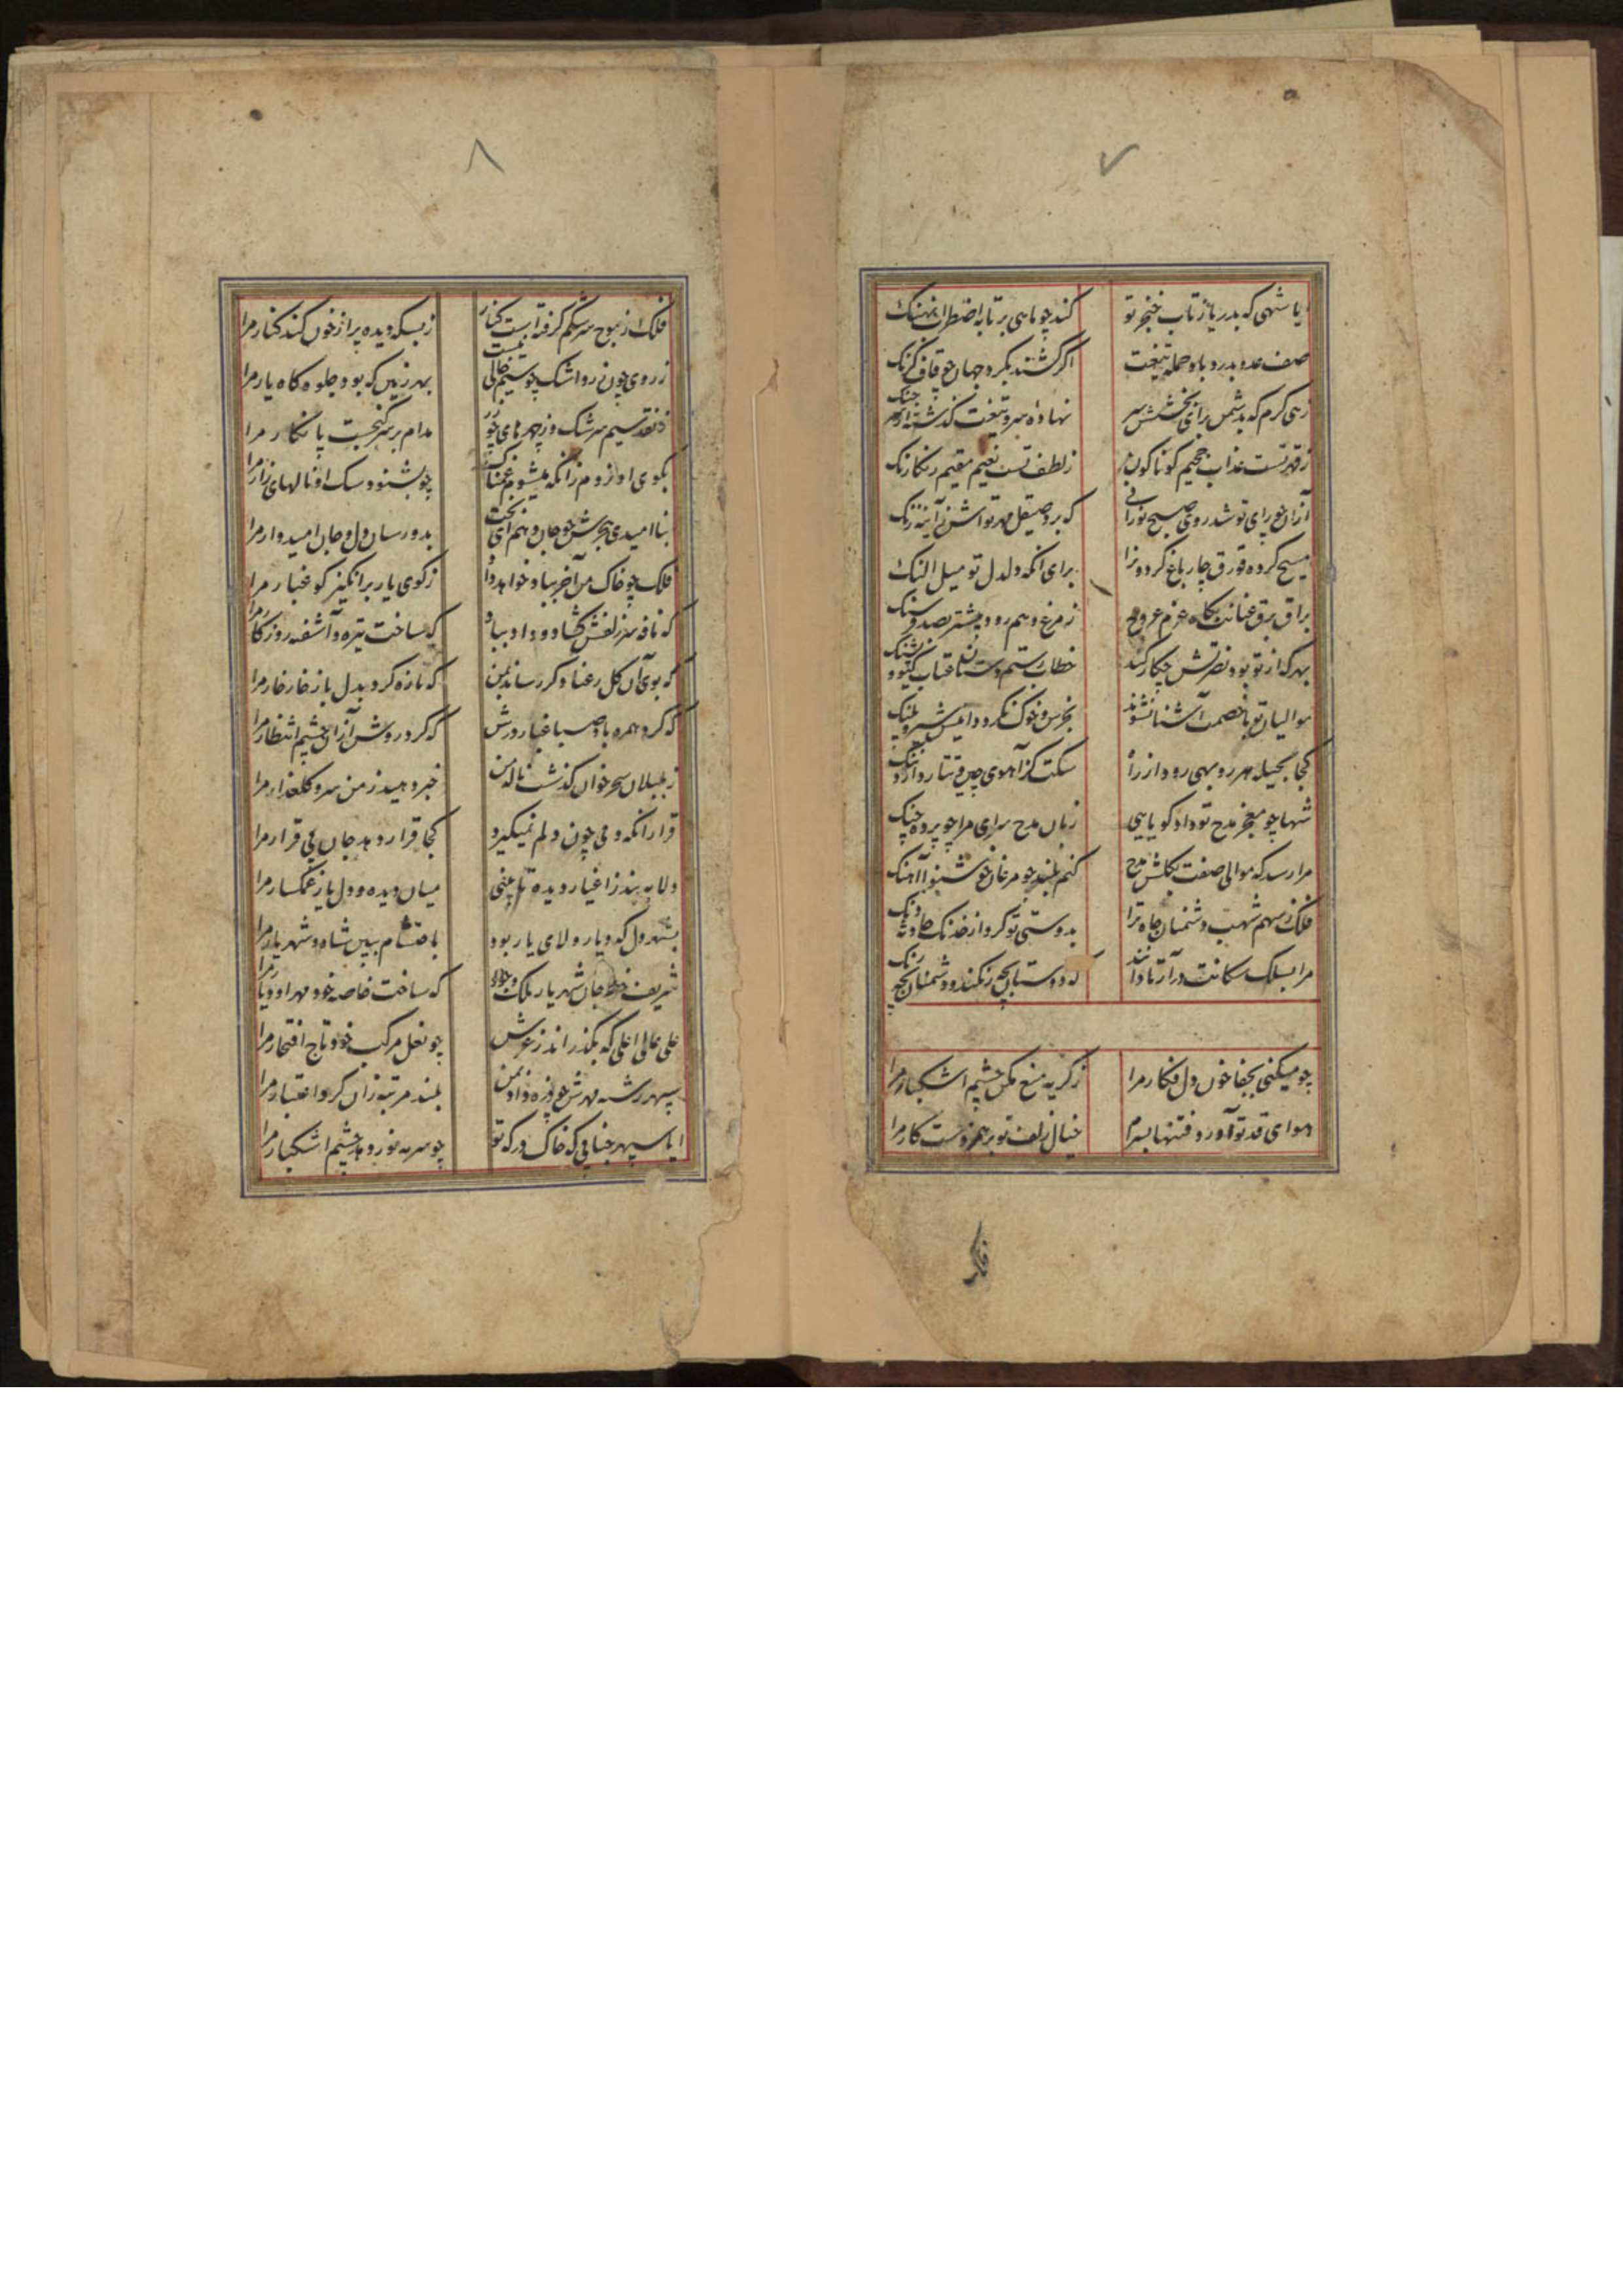 ۷
یا شهی که بدریا ز تاب خنجر تو
کند چو ماهی بر تابه اضطراب نهنک
صف عدو بدرد باد حمله تیغت
اگر کشند بکرد جهان چو قاف کرنک
زهی کرم که بدشمن برای بخشش سر
نهاده سرو تیغت کذشته از سر جنک
ز قهر تست عذاب جحیم کوناکون
ز لطف تست نعیم مقیم رنکارنک
ازان چو رای تو شد روی صبح نورانی
که برد صیقل مهر تواش ز آینه زنک
مسیح کرده قورق چار باغ کردونرا
برای انکه دلدل تو میل النک
براق برق عنانت بکاه عزم عروج
ز مرغ وهم رود پیشتر بصد فرسنک
بهر که از تو بود نصرتش چکار کند
خطاب رستم دستان عتاب کیو و پشنک
موالیان تو با خصمت آشنا نشوند
بخرس و خوک نکردد انیس شیر و پلنک
کجا بحیله هر روبهی رود از راه
سکت کز آهوی چین و تتار دارد ننک
شها چو معجز مدح تو داد کویایی
زبان مدح سرای مرا چو پرده چنک
مرا رسد که موالی صفت بکلشن مدح
کنم بلند چو مرغان خوشنوا آهنک
فلک ز سهم شهب دشمنان جاه ترا
بدوستی تو کرد از خدنک حادثه دنک
مرا بسلک سکانت درآر تا دانند
که دوستان بچه رنکند و دشمنان بچه رنک
چو میکنی بجفا خون دل فکار مرا
ز کریه منع مکن چشم اشکبار مرا
هوای قد تو آورد فتنها بسرم
خیال زلف تو بر هم زدست کار مرا
۸
فلک ز موج سرشکم کرفته است کنار
ز بسکه دیده پر از خون کند کنار مرا
ز روی چون زر و اشک چو سیم خالی نیست
بهر زمین که بود جلوه کاه یار مرا
ز نقد سیم سرشک و ز چهرهای چو زر
مدام بر سر کنجست پا نکار مرا
بکوی او نروم زانکه میشود غمناک
چو بشنود سک او نالهای زار مرا
بناامیدی هجرش چو جان دهم ای بخت
بدو رسان دل و جان امیدوار مرا
فلک چو خاک من آخر بباد خواهد داد
ز کوی یار برانکیز کو غبار مرا
که نافه سر زلفش کشاد و داد بباد
که ساخت تیره و آشفته روزکار مرا
که بوی آن کل رعنا دکر رساند بمن
که تازه کرد بدل باز خار خار مرا
که کرد همره باد صبا غبار درش
که کرد روشن ازان چشم انتظار مرا
ز بلبلان سحر خوان کذشت ناله من
خبر دهید ز من سرو کلعذار مرا
قرار انکه دمی چون دلم نمیکیرد
کجا قرار دهد جان بی قرار مرا
دلا به بند ز اغیار دیده تا بینی
میان دیده و دل یار غمکسار مرا
بشهر دل که دیار ولای یار بود
باحتشام ببین شاه و شهریار مرا
شریف خطه جان شهریار ملک وجود
که ساخت خاصه خود مهر او دیار مرا
علی عالی اعلی که بکذراند ز عرش
چو نعل مرکب خود تاج افتخار مرا
سپهر رتبه مهرش چو ذره داد بمن
بلند مرتبه زان کرد اعتبار مرا
ایا سپهر جنابی که خاک درکه تو
چو سرمه نور دهد چشم اشکبار مرا